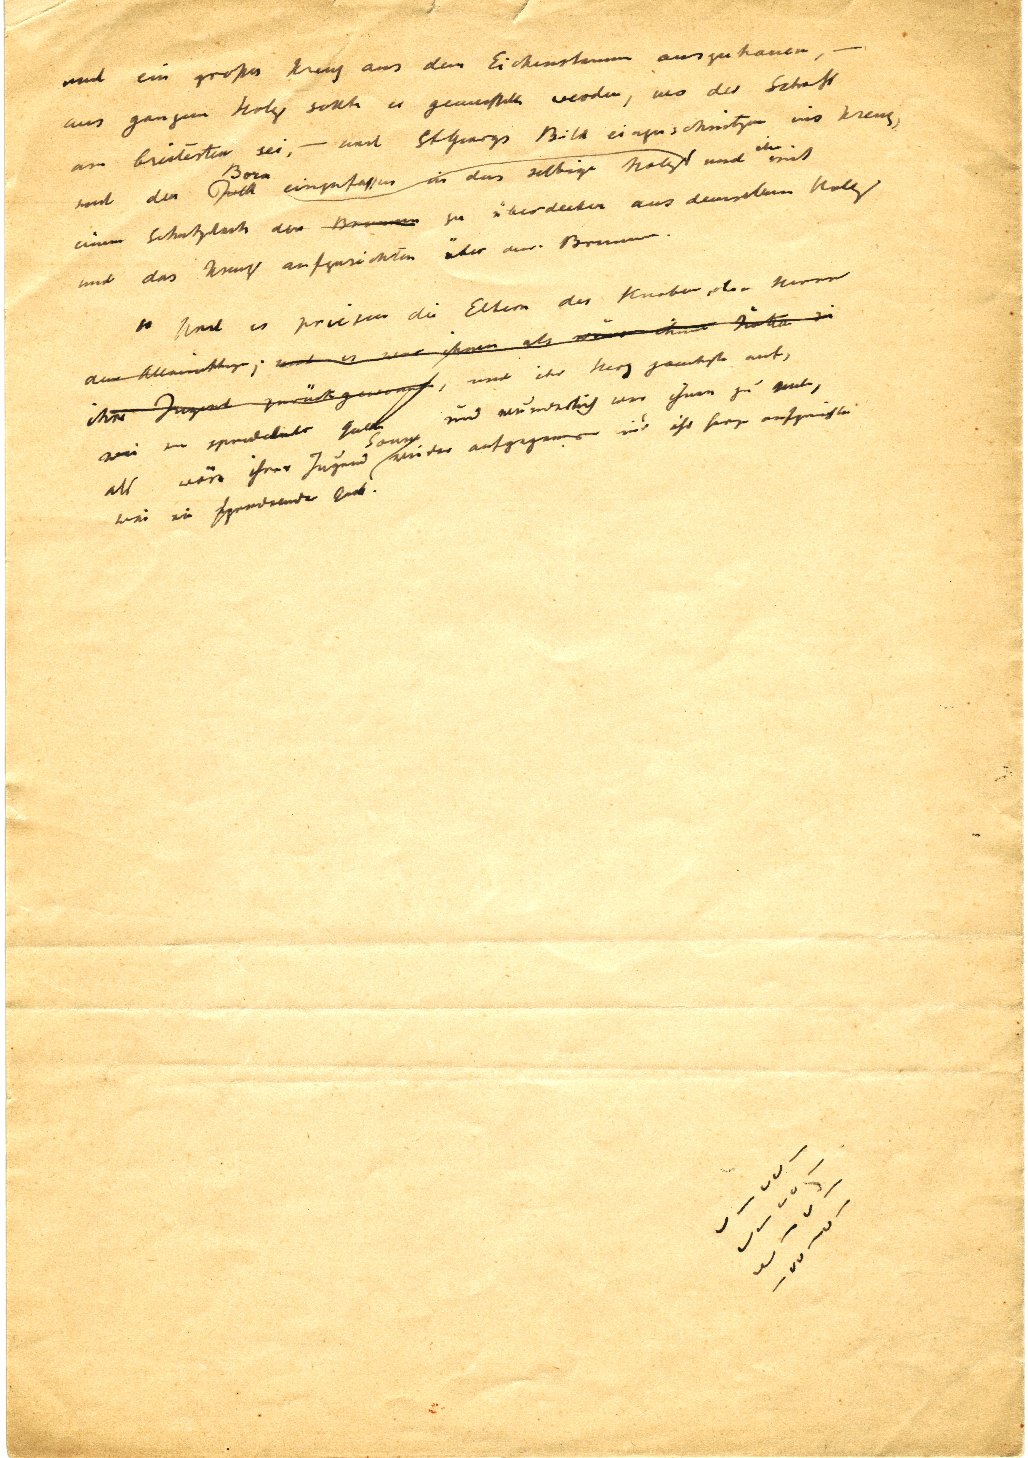 und ein großes Kreuz aus dem Eichenstamm auszuhauen, —
aus ganzem Holz sollte es gemeißelt werden, wo der Schaft
am breitesten sei, — und St. Georgs Bild einzuschnitzen ins Kreuz,
Born
und den Quell einzufassen in das selbige Holz und ihn mit
einem Schutzdach den Brunnen zu überdecken aus demselben Holz
und das Kreuz aufzurichten über dem Brunnen.
Und es priesen die Eltern des Knaben den Herrn
den Allmächtigen; und es war ihnen als wäre ihnen
ihre Jugend zurückgewonnen, und ihr Herz jauchzte auf,
wie ein sprudelnder Quell und wunderlich war ihnen zu mute,
Sonne
als wäre ihrer Jugend wieder aufgegangen und ihr Herz
wie ein Quell.